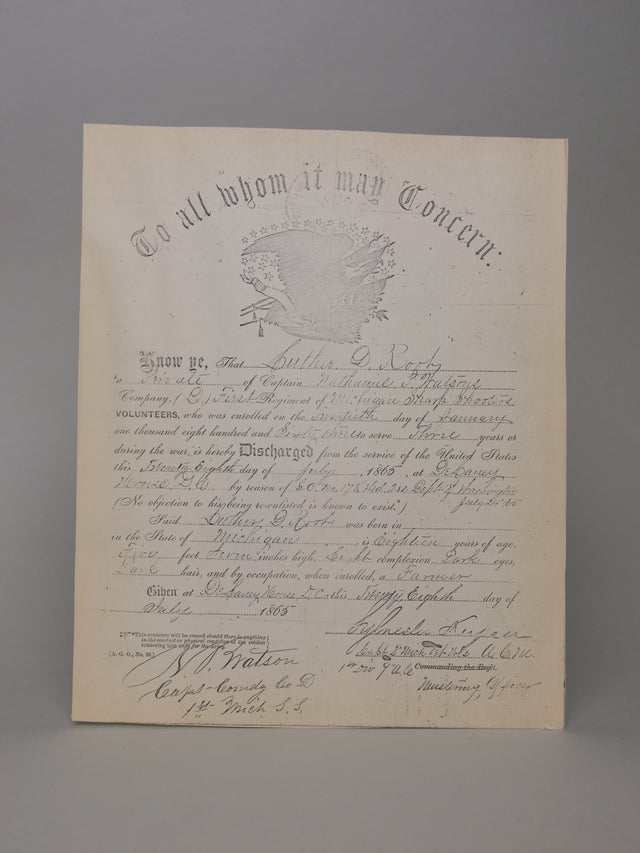 To all whom it may Concern:
Know ye, That Luther D. Root
a Private of Captain Nathaniel P. Watsons
Company, (D,) First Regiment of Michigan Sharp Shooters
VOLUNTEERS, who was enrolled on the Twentieth day of January
one thousand eight hundred and Sixty three to serve Three years or
during the war, is hereby Discharged from the service of the United States
this Twenty Eighth day of July, 1865, at DeLaney
House, D.C. by reason of S.O. No. 178 Hd. Qrs. Dept of Washington
(No objection to his being re-enlisted is known to exist.*) July 25th 65
Said Luther D. Root was born in
in the State of Michigan, is Eighteen years of age,
Five feet Seven inches high, Light complexion, Dark eyes,
Dark hair, and by occupation, when enrolled, a Farmer
Given at DeLaney House D.C. this Twenty Eighth day of
July 1865
*This sentence will be erased should there be anything
in the conduct or physical condition of the soldier
rendering him unfit for the Army.
[A. G. O., No. 99.]
N. P. Watson
Capt Comdg Co D
1st Mich S.S.
Capt 2" Mich Vet Vols A.C.M.
1st Div 9" A.C. Commanding the Reg't.
Mustering Officer